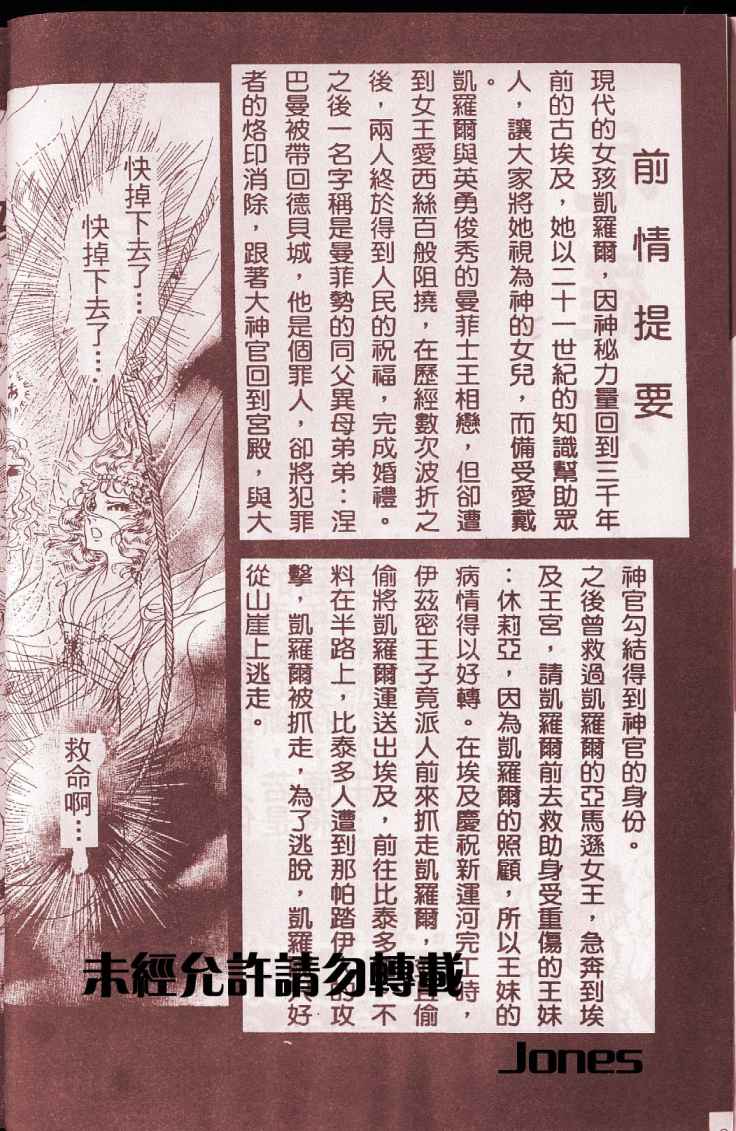 前情提要
現代的女孩凱羅爾，因神秘力量回到三千年
前的古埃及，她以二十一世紀的知識幫助眾
人，讓大家將她視為神的女兒，而備受愛戴
。
凱羅爾與英勇俊秀的曼菲士王相戀，但卻遭
到女王愛西絲百般阻撓，在歷經數次波折之
後，兩人終於得到人民的祝福，完成婚禮。
之後一名字稱是曼菲勢的同父異母弟弟：涅
巴曼被帶回德貝城，他是個罪人，卻將犯罪
者的烙印消除，跟著大神官回到宮殿，與大
神官勾結得到神官的身份。
之後曾救過凱羅爾的亞馬遜女王，急奔到埃
及王宮，請凱羅爾前去救助身受重傷的王妹
：休莉亞，因為凱羅爾的照顧，所以王妹的
病情得以好轉。在埃及慶祝新運河完工時，
伊茲密王子竟派人前來抓走凱羅爾，偷
偷將凱羅爾運送出埃及，前往比泰多 不
料在半路上，比泰多人遭到那帕踏伊 的攻
擊，凱羅爾被抓走，為了逃脫，凱羅 好
從山崖上逃走。
快掉下去了…
快掉下去了…．
救命啊…
あ
未經允許請勿轉載
Jones